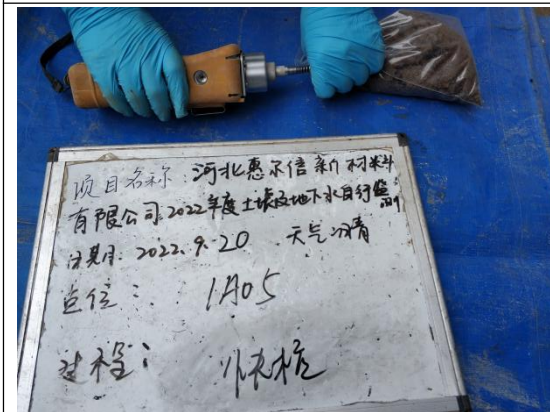 项目名称:河北惠尔信新材料
有限公司2022年度土壤及地下水自行监测
日期:2022.9.20 天气:晴
点位: 1A05
过程: 快检